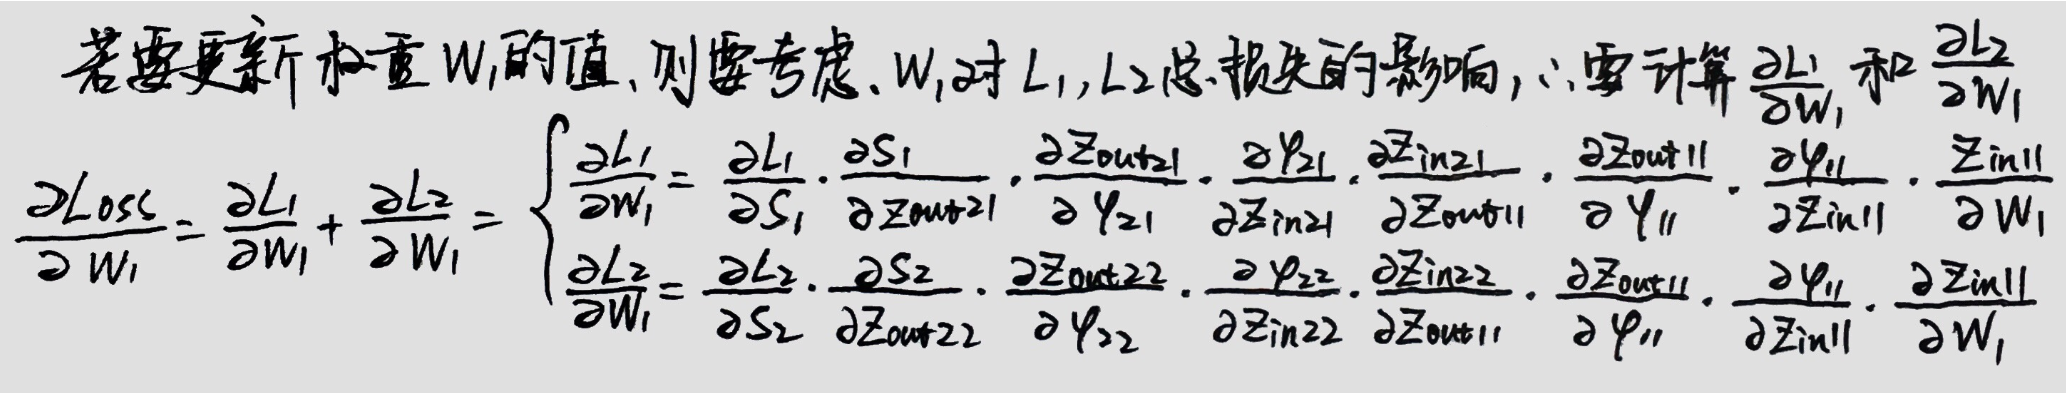 若要更新权重W₁的值,则要考虑,W₁对L₁,L₂总损失的影响,∴要计算 ∂L₁/∂W₁ 和 ∂L₂/∂W₁
∂Loss/∂W₁ = ∂L₁/∂W₁ + ∂L₂/∂W₁ = {
∂L₁/∂W₁ = ∂L₁/∂S₁ · ∂S₁/∂Zout21 · ∂Zout21/∂φ₂₁ · ∂φ₂₁/∂Zin21 · ∂Zin21/∂Zout11 · ∂Zout11/∂φ₁₁ · ∂φ₁₁/∂Zin11 · Zin11/∂W₁
∂L₂/∂W₁ = ∂L₂/∂S₂ · ∂S₂/∂Zout22 · ∂Zout22/∂φ₂₂ · ∂φ₂₂/∂Zin22 · ∂Zin22/∂Zout11 · ∂Zout11/∂φ₁₁ · ∂φ₁₁/∂Zin11 · ∂Zin11/∂W₁